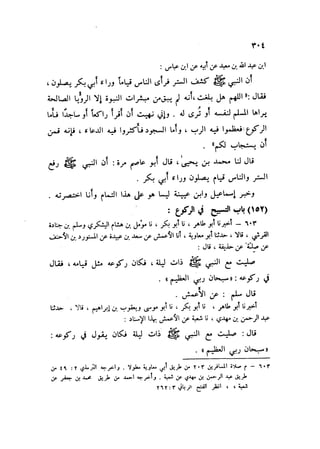 ٣٠٤
ابن عبد الله بن معبد عن أبيه عن ابن عباس :
أن النبي ﷺ كشف الستر فرأى الناس قياماً وراء أبي بكر يصلون ،
فقال : « اللهم هل بلغت ، أنه لم يبق من مبشرات النبوة إلا الرؤيا الصالحة
يراها المسلم لنفسه أو تُرى له . وإني نهيت أن أقرأ راكعاً أو ساجداً فأما
الركوع فعظموا فيه الرب ، وأما السجود فأكثروا فيه الدعاء ، فإنه قمن
أن يستجاب لكم » .
قال لنا محمد بن يحيى ، قال أبو عاصم مرة : أن النبي ﷺ رفع
الستر والناس قيام يصلون وراء أبي بكر .
وخبر إسماعيل وابن عيينة ليسا هو على هذا التمام وأنا اختصرته .
(١٥٢) باب التسبيح في الركوع :
٦٠٣ - أخبرنا أبو طاهر ، نا أبو بكر ، نا مؤمل بن هشام اليشكري وسلم بن جنادة
القرشي ، قالا ، حدثنا أبو معاوية ، أنا الأعمش عن سعد بن عبيدة عن المستورد بن الأحنف
عن صلة عن حذيفة ، قال :
صليت مع النبي ﷺ ذات ليلة ، فكان ركوعه مثل قيامه ، فقال
في ركوعه : « سبحان ربي العظيم » .
قال سلم : عن الأعمش .
أخبرنا أبو طاهر ، نا أبو بكر ، نا أبو موسى ويعقوب بن إبراهيم ، قالا . حدثنا
عبد الرحمن بن مهدي ، نا شعبة عن الأعمش بهذا الإسناد :
قال : صليت مع النبي ﷺ ذات ليلة فكان يقول في ركوعه :
« سبحان ربي العظيم » .
٦٠٣ - م صلاة المسافرين ٢٠٣ من طريق أبي معاوية مطولا . وأخرجه الترمذي ٢ : ٤٩ من
طريق عبد الرحمن بن مهدي عن شعبة . وأخرجه أحمد من طريق محمد بن جعفر عن
شعبة ، انظر الفتح الرباني ٣ : ٢٦٢